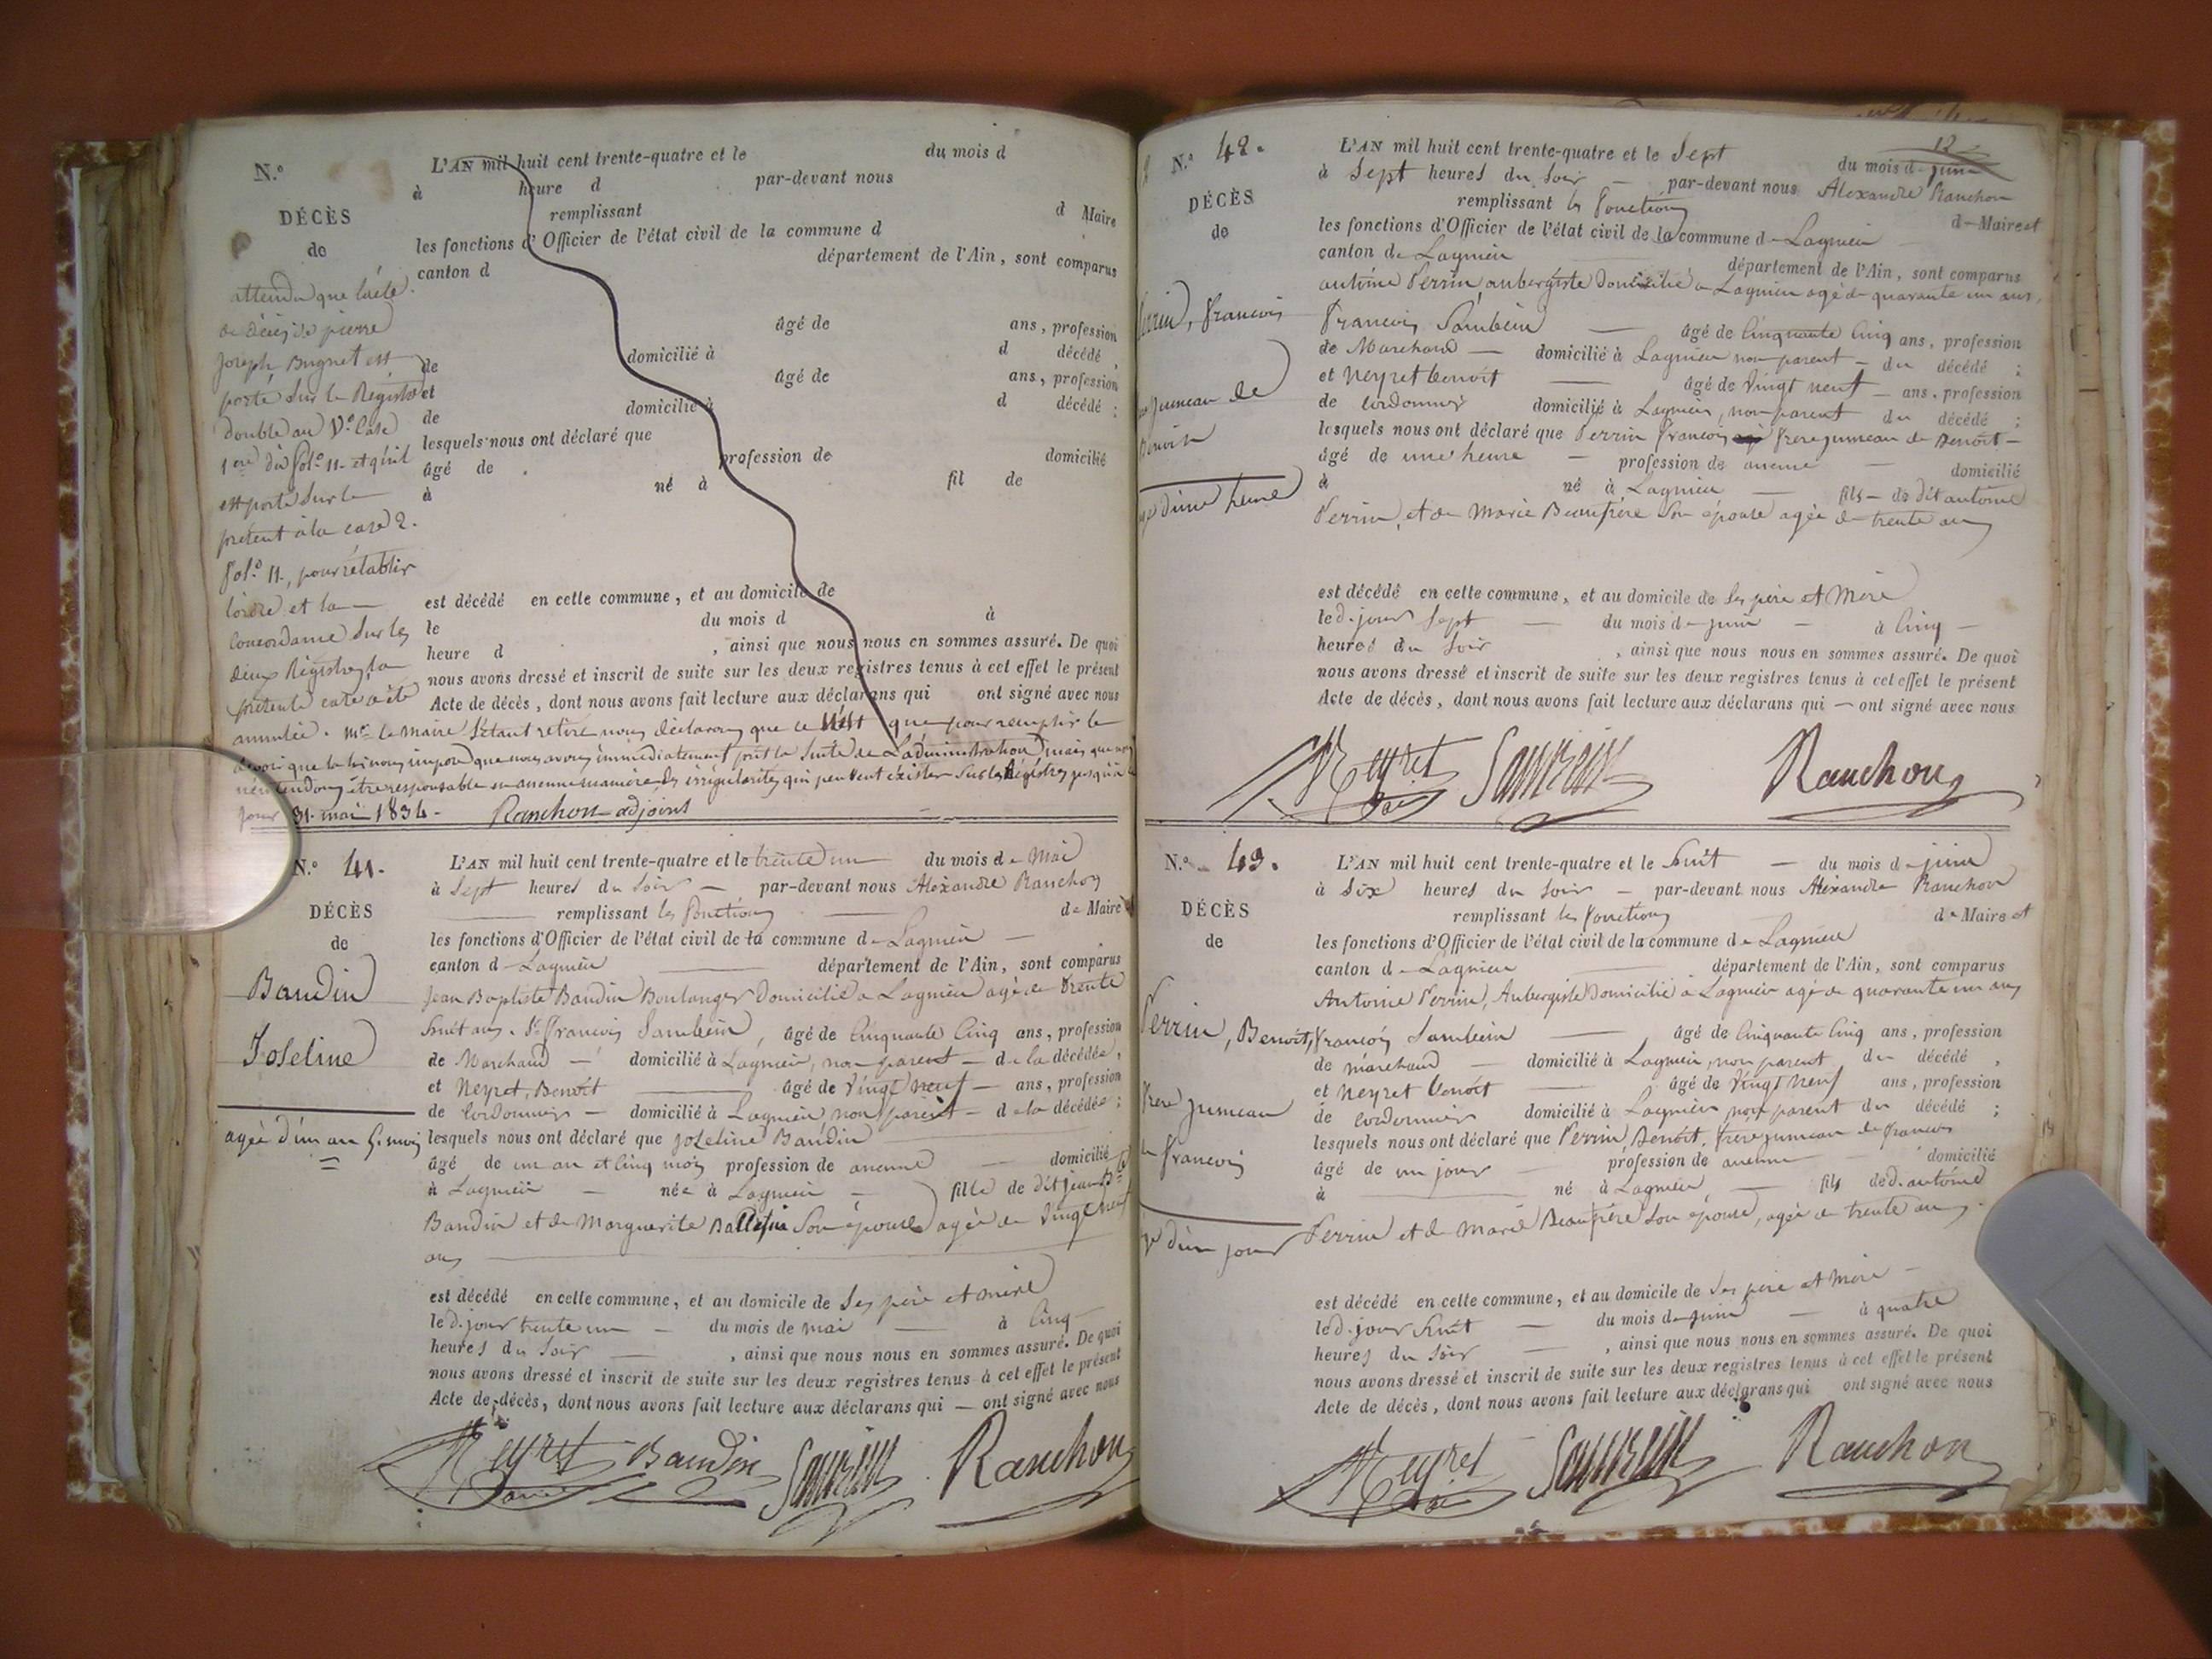 N.°
DÉCÈS
de
attendu que l'acte
de décès de pierre
Joseph Bugnet est
porté sur le Régistre
double au V.° Case
1ere du fol.° 11. et qu'il
est porté sur le
présent à la case 2.
fol.° 11., pour rétablir
l'ordre et la
concordance sur les
deux Régistres, la
présente case a été
annulée. Mr. le Maire s'étant retiré nous déclarons que ce n'est que pour remplir le
devoir que la loi nous impose que nous avons immédiatement pris la suite de L'administration mais que nous
n'entendons être responsable en aucune manière des irrégularités qui peuvent éxister sur les Régistres jusqu'à ce
jour 31. mai 1834. Ranchon adjoint
L'AN mil huit cent trente-quatre et le du mois d
à heure d par-devant nous
remplissant d Maire
les fonctions d'Officier de l'état civil de la commune d
canton d département de l'Ain, sont comparus
âgé de ans, profession
de domicilié à d décédé,
et âgé de ans, profession
de domicilié à d décédé ;
lesquels nous ont déclaré que
âgé de profession de domicilié
à né à fil de
est décédé en cette commune, et au domicile de
le du mois d à
heure d , ainsi que nous nous en sommes assuré. De quoi
nous avons dressé et inscrit de suite sur les deux registres tenus à cet effet le présent
Acte de décès, dont nous avons fait lecture aux déclarans qui ont signé avec nous
N.° 41.
DÉCÈS
de
Baudin
Joseline
agée d'un an 5. mois
L'AN mil huit cent trente-quatre et le trente un du mois de Mai
à Sept heures du Soir par-devant nous Alexandre Ranchon
remplissant les fonctions de Maire et
les fonctions d'Officier de l'état civil de la commune de Lagnieu
canton d Lagnieu département de l'Ain, sont comparus
Jean Baptiste Baudin Boulanger domicilié à Lagnieu agé de trente
huit ans. Sr. François Sambein, âgé de Cinquante Cinq ans, profession
de Marchand domicilié à Lagnieu, non parent de la décédée,
et Neyret, Benoît âgé de Vingt neuf ans, profession
de Cordonnier domicilié à Lagnieu non parent de la décédée ;
lesquels nous ont déclaré que Joseline Baudin
âgé de un an et Cinq mois profession de aucune domicilié
à Lagnieu née à Lagnieu fille de dit Jean Bte
Baudin et de Marguerite Ballefin Son épouse agée de Vingt neuf
ans
est décédé en cette commune, et au domicile de Ses père et mère
le d. jour trente un du mois de mai à Cinq
heures du Soir , ainsi que nous nous en sommes assuré. De quoi
nous avons dressé et inscrit de suite sur les deux registres tenus à cet effet le présent
Acte de décès, dont nous avons fait lecture aux déclarans qui ont signé avec nous
Neyret Baudin Sambein Ranchon
12
N.° 42.
DÉCÈS
de
Perrin, francois
jumeau de
Benoit
d'une heure
L'AN mil huit cent trente-quatre et le Sept du mois de juin
à Sept heures du Soir par-devant nous Alexandre Ranchon
remplissant les fonctions de Maire et
les fonctions d'Officier de l'état civil de la commune d Lagnieu
canton de Lagnieu département de l'Ain, sont comparus
antoine Perrin, aubergiste domicilié a Lagnieu agé de quarante un ans,
francois Sambein âgé de Cinquante Cinq ans, profession
de Marchand domicilié à Lagnieu non parent du décédé ;
et Neyret benoit âgé de Vingt neuf ans, profession
de Cordonnier domicilié à Lagnieu, non parent du décédé ;
lesquels nous ont déclaré que Perrin francois frere jumeau de Benoit
âgé de une heure profession de aucune domicilié
à né à Lagnieu fils de dit antoine
Perrin, et de Marie Beaufrère Son épouse agée de trente ans
est décédé en cette commune, et au domicile de Ses père et Mère
le d. jour Sept du mois de juin à Cinq
heures du Soir , ainsi que nous nous en sommes assuré. De quoi
nous avons dressé et inscrit de suite sur les deux registres tenus à cet effet le présent
Acte de décès, dont nous avons fait lecture aux déclarans qui ont signé avec nous
Neyret Sambein Ranchon
N.° 43.
DÉCÈS
de
Perrin, Benoit,
frère jumeau
de francois
d'un jour
L'AN mil huit cent trente-quatre et le huit du mois de juin
à Six heures du Soir par-devant nous Alexandre Ranchon
remplissant les fonctions de Maire et
les fonctions d'Officier de l'état civil de la commune de Lagnieu
canton de Lagnieu département de l'Ain, sont comparus
Antoine Perrin, Aubergiste domicilié a Lagnieu agé de quarante un ans
francois Sambein âgé de Cinquante Cinq ans, profession
de marchand domicilié à Lagnieu, non parent du décédé,
et Neyret benoit âgé de Vingt neuf ans, profession
de Cordonnier domicilié à Lagnieu non parent du décédé ;
lesquels nous ont déclaré que Perrin, Benoit, frere jumeau de francois
âgé de un jour profession de aucune domicilié
à né à Lagnieu fils de d. antoine
Perrin et de Marie Beaufrère Son épouse, agée de trente ans.
est décédé en cette commune, et au domicile de Ses père et Mère
le d. jour huit du mois de juin à quatre
heures du Soir , ainsi que nous nous en sommes assuré. De quoi
nous avons dressé et inscrit de suite sur les deux registres tenus à cet effet le présent
Acte de décès, dont nous avons fait lecture aux déclarans qui ont signé avec nous
Neyret Sambein Ranchon